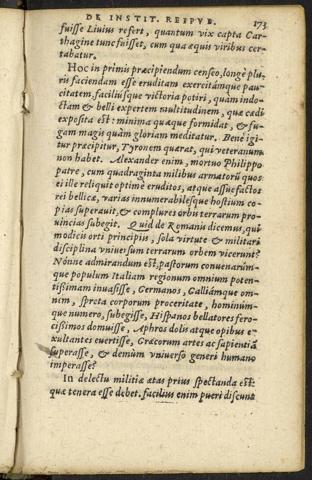 DE INSTIT. REIPVB. 173
fuisse Liuius refert, quantum vix capta Car-
thagine tunc fuisset, cum qua æquis viribus cer-
tabatur.
Hoc in primis præcipiendum censeo, longè plu-
ris faciendam esse eruditam exercitámque pau-
citatem, faciliúsque victoria potiri, quàm indo-
ctam & belli expertem multitudinem, quæ cædi
exposita est: minima quæque formidat, & fu-
gam magis quàm gloriam meditatur. Bene igi-
tur præcipitur, Tyronem quærat, qui veteranum
non habet. Alexander enim, mortuo Philippo
patre, cum quadraginta milibus armatorū quos
ei ille reliquit optimè eruditos, atque assuefactos
rei bellicæ, varias innumerabilesque hostium co-
pias superauit, & complures orbis terrarum pro-
uincias subegit. Quid de Romanis dicemus, qui
modicis orti principiis, sola virtute & militari
disciplina vniuersum terrarum orbem vicerunt?
Nónne admirandum est, pastorum conuenarúm-
que populum Italiam regionum omnium poten-
tissimam inuasisse, Germanos, Galliámque om-
nem, spreta corporum proceritate, hominúm-
que numero, subegisse, Hispanos bellatores fero-
cissimos domuisse, Aphros dolis atque opibus e-
xultantes euertisse, Græcorum artes ac sapientiā
superasse, & demùm vniuerso generi humano
imperasse?
In delectu militiæ ætas prius spectanda est:
quæ tenera esse debet. facilius enim pueri discunt